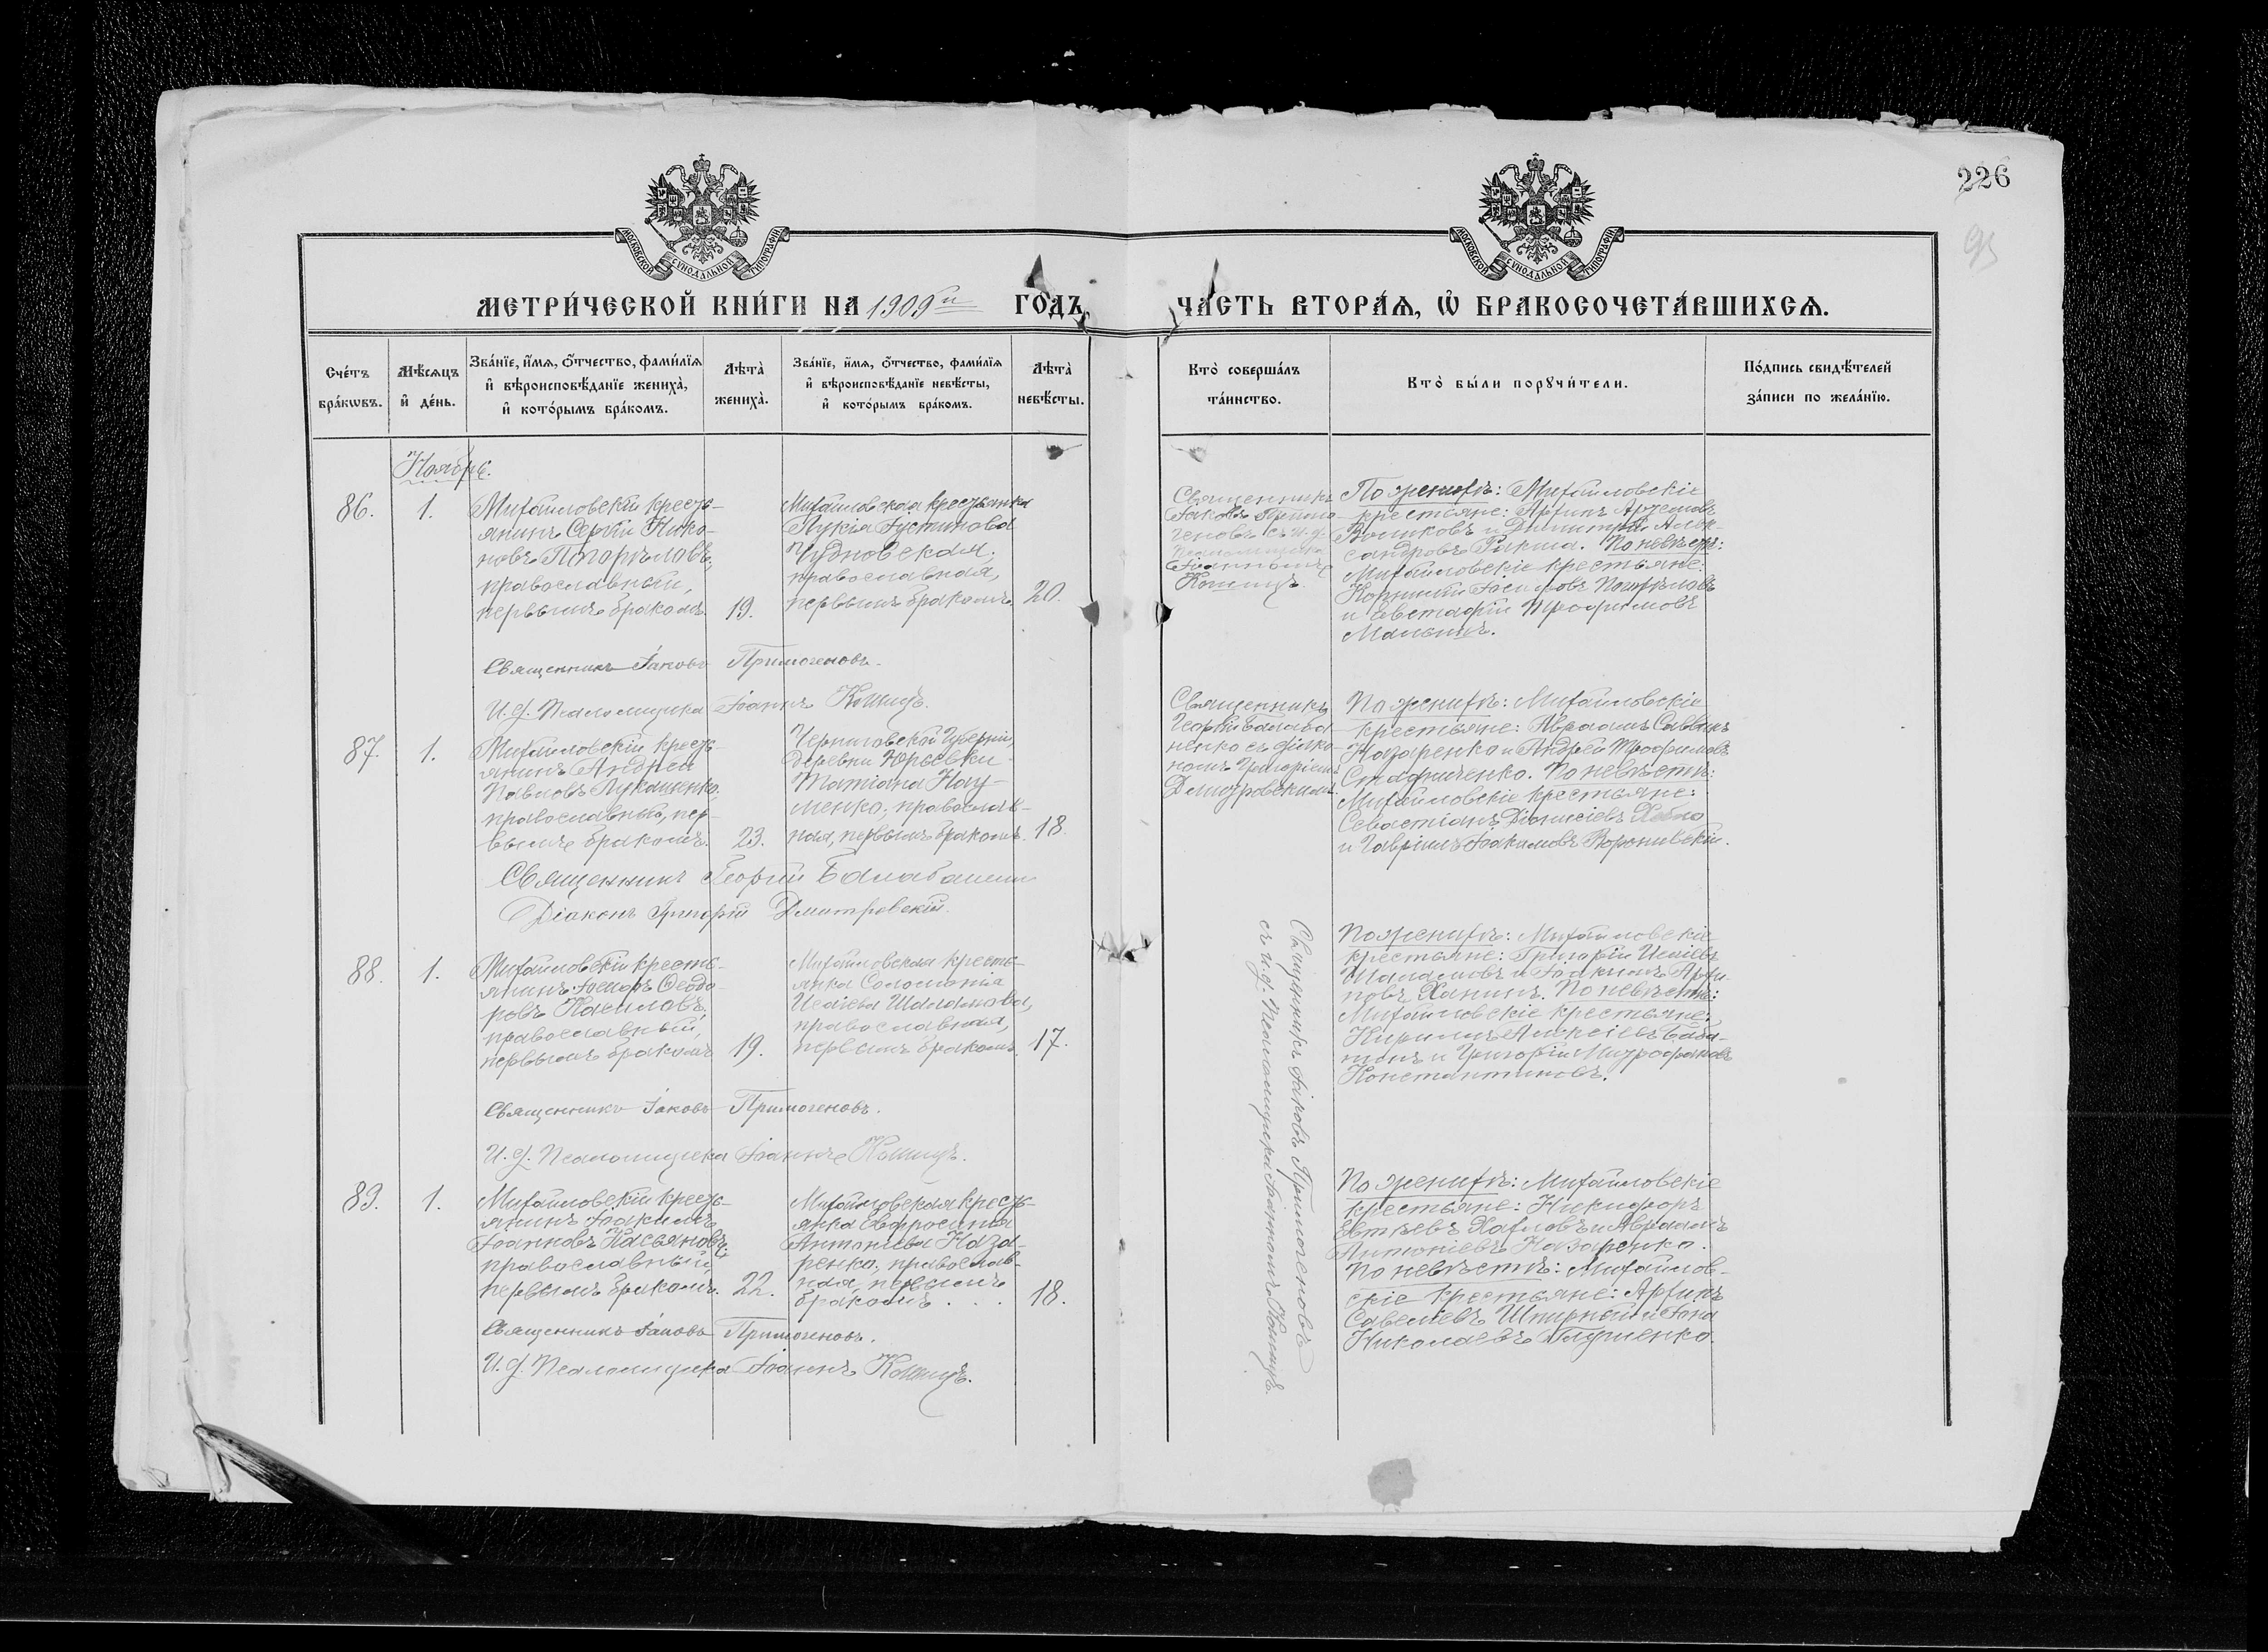 226
95
МОСКОВСКОЙ СѴНОДАЛЬНОЙ ТИПОГРАФІИ
МОСКОВСКОЙ СѴНОДАЛЬНОЙ ТИПОГРАФІИ
МЕТРИ́ЧЕСКОЙ КНИ́ГИ НА 1909й ГОДЪ,
ЧАСТЬ ВТОРА́Я, Ѽ БРАКОСОЧЕТА́ВШИХСЯ.
Сче́тъ
бра́кѡвъ.
Мѣ́сяцъ
и҆ де́нь.
Зва́нїе, и҆́мѧ, ѻ҆́тчество, фами́лїѧ
и҆ вѣроисповѣ́данїе жениха̀,
и҆ кото́рымъ бра́комъ.
Лѣта̀
жениха̀.
Зва́нїе, и҆́мѧ, ѻ҆́тчество, фами́лїѧ
и҆ вѣроисповѣ́данїе невѣ́сты,
и҆ кото́рымъ бра́комъ.
Лѣта̀
невѣ́сты.
Кто̀ соверша́лъ
та́инство.
Кто̀ бы́ли порꙋчи́тели.
По́дпись свидѣ́телей
за́писи по жела́нїю.
Ноябрь.
86.
1.
Михайловскій кресть-
янинъ Сергій Нико-
новъ Погорѣловъ,
православный,
первымъ бракомъ.
19.
Михайловская крестьянка
Лукія Іустинова
Чудновская.
православная,
первымъ бракомъ.
20.
Священникъ
Іаковъ Примо-
геновъ съ и.д.
псаломщика
Іоанномъ
Кошицъ.
По женихѣ: Михайловскіе
крестьяне: Архипъ Артемовъ
Воликовъ и Димитрій Алек-
сандровъ Ракша. По невѣстѣ:
Михайловскіе крестьяне:
Корнилій Іосифовъ Погорѣловъ
и Евстафій Трофимовъ
Малышъ.
Священникъ Іаковъ Примогеновъ.
И.д. Псаломщика Іоаннъ Кошицъ.
87.
1.
Михайловскій кресть-
янинъ Андрей
Павловъ Лукашенко,
православный, пер-
вымъ бракомъ.
23.
Черниговской Губерніи,
деревни Юрьевки
Татіана Нау-
менко, православ-
ная, первымъ бракомъ.
18.
Священникъ
Георгій Балаба-
ненко съ діако-
номъ Григоріемъ
Дмитровскимъ.
По женихѣ: Михайловскіе
крестьяне: Авраамъ Саввинъ
Назаренко и Андрей Трофимовъ
Стадниченко. По невѣстѣ:
Михайловскіе крестьяне:
Севастіанъ Діонисіевъ
и Гавріилъ Іоакимовъ
Священникъ Георгій Балабаненко
Діаконъ Григорій Дмитровскій.
88.
1.
Михайловскій кресть-
янинъ Ѳеодо-
ровъ
православный,
первымъ бракомъ
19.
Михайловская кресть-
янка Соломонія
Исаіева Шаламова,
православная,
первымъ бракомъ.
17.
Священникъ Іаковъ Примогеновъ
съ и.д. Псаломщика Іоанномъ Кошицъ.
По женихѣ: Михайловскіе
крестьяне: Григорій Исаіевъ
Шаламовъ и Іоакимъ Архи-
повъ Ханинъ. По невѣстѣ:
Михайловскіе крестьяне:
Кириллъ Алексіевъ
и Григорій Митрофановъ
Константиновъ.
Священникъ Іаковъ Примогеновъ.
И.д. Псаломщика Іоаннъ Кошицъ.
89.
1.
Михайловскій кресть-
янинъ Іоакимъ
Іоанновъ Касьяновъ,
православный,
первымъ бракомъ.
22.
Михайловская кресть-
янка Евфросинія
Антоніева Наза-
ренко, православ-
ная, первымъ
бракомъ . . .
18.
По женихѣ: Михайловскіе
крестьяне: Никифоръ
и Авраамъ
Антоніевъ Назаренко.
По невѣстѣ: Михайлов-
скіе крестьяне: Архипъ
Савеліевъ Шпирный и Іона
Николаевъ Глущенко.
Священникъ Іаковъ Примогеновъ.
И.д. Псаломщика Іоаннъ Кошицъ.